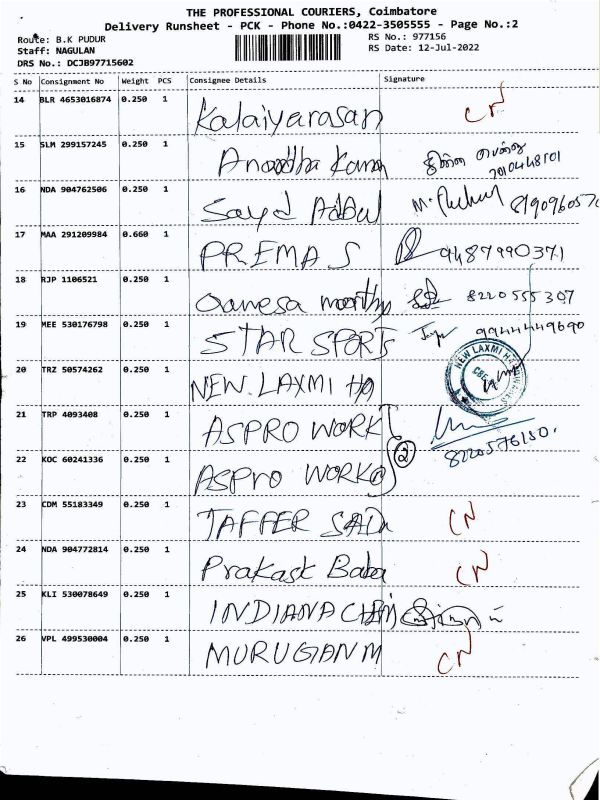 THE PROFESSIONAL COURIERS, Coimbatore
Delivery Runsheet - PCK - Phone No.:0422-3505555 - Page No.:2
Route: B.K PUDUR
RS No.: 977156
Staff: NAGULAN
RS Date: 12-Jul-2022
DRS No.: DCJB97715602
S No Consignment No Weight PCS Consignee Details Signature
14 BLR 4653016874 0.250 1 Kalaiyarasan CN
15 SLM 299157245 0.250 1
16 NDA 904762506 0.250 1 Sayed Abdul
17 MAA 291209984 0.660 1 PREMA S 9487990371
18 RJP 1106521 0.250 1 moorthy 8220555307
19 MEE 530176798 0.250 1 STAR SPORTS 9944449690
20 TRZ 50574262 0.250 1 NEW LAXMI NEW LAXMI
21 TRP 4093408 0.250 1 ASPRO WORK
22 KOC 60241336 0.250 1 ASPRO WORK 2
23 CDM 55183349 0.250 1 JAFFER CN
24 NDA 904772814 0.250 1 Prakash Baba CN
25 KLI 530078649 0.250 1 INDIANA
26 VPL 499530004 0.250 1 MURUGAN M CN